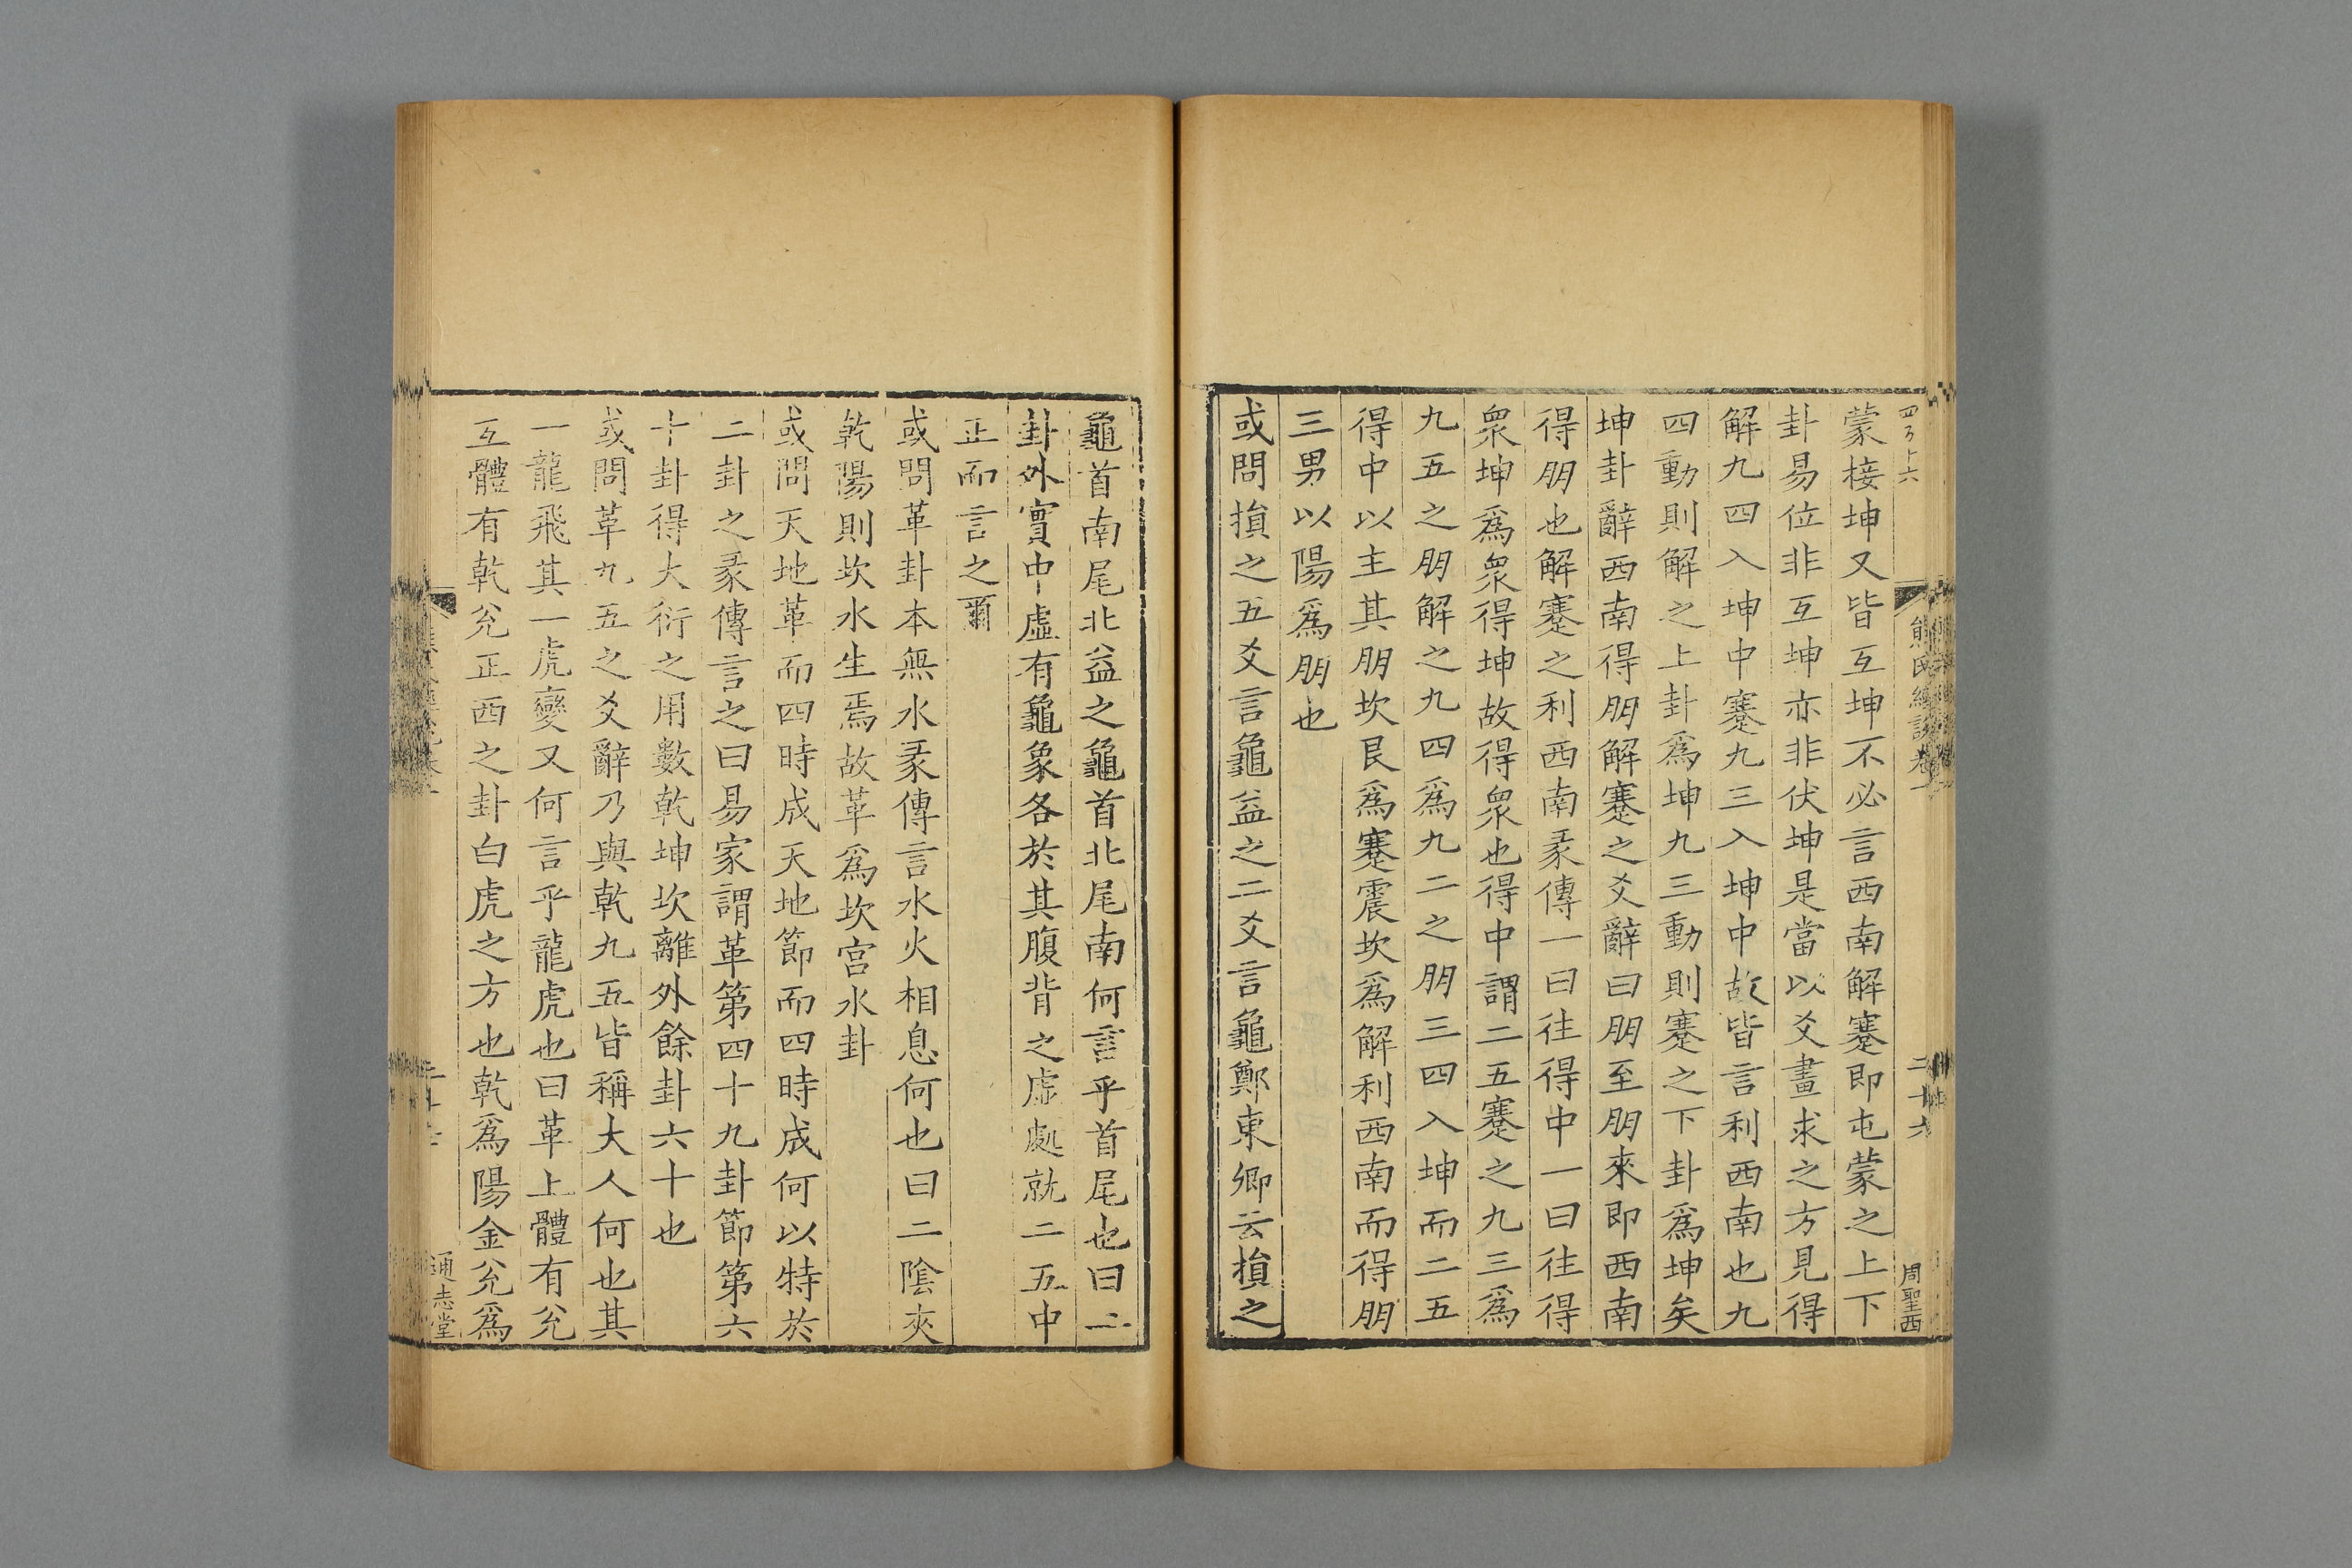 四百十六
熊氏經說卷一
二十六
周聖西
蒙接坤又皆互坤不必言西南解蹇即屯蒙之上下
卦易位非互坤亦非伏坤是當以爻畫求之方見得
解九四入坤中蹇九三入坤中故皆言利西南也九
四動則解之上卦爲坤九三動則蹇之下卦爲坤矣
坤卦辭西南得朋解蹇之爻辭曰朋至朋來即西南
得朋也解蹇之利西南彖傳一曰往得中一曰往得
衆坤爲衆得坤故得衆也得中謂二五蹇之九三爲
九五之朋解之九四爲九二之朋三四入坤而二五
得中以主其朋坎艮爲蹇震坎爲解利西南而得朋
三男以陽爲朋也
或問損之五爻言龜益之二爻言龜鄭東卿云損之
龜首南尾北益之龜首北尾南何言乎首尾也曰二
卦外實中虛有龜象各於其腹背之虛處就二五中
正而言之爾
或問革卦本無水彖傳言水火相息何也曰二陰夾
乾陽則坎水生焉故革爲坎宮水卦
或問天地革而四時成天地節而四時成何以特於
二卦之彖傳言之曰易家謂革第四十九卦節第六
十卦得大衍之用數乾坤坎離外餘卦六十也
或問革九五之爻辭乃與乾九五皆稱大人何也其
一龍飛其一虎變又何言乎龍虎也曰革上體有兌
互體有乾兌正西之卦白虎之方也乾爲陽金兌爲
通志堂